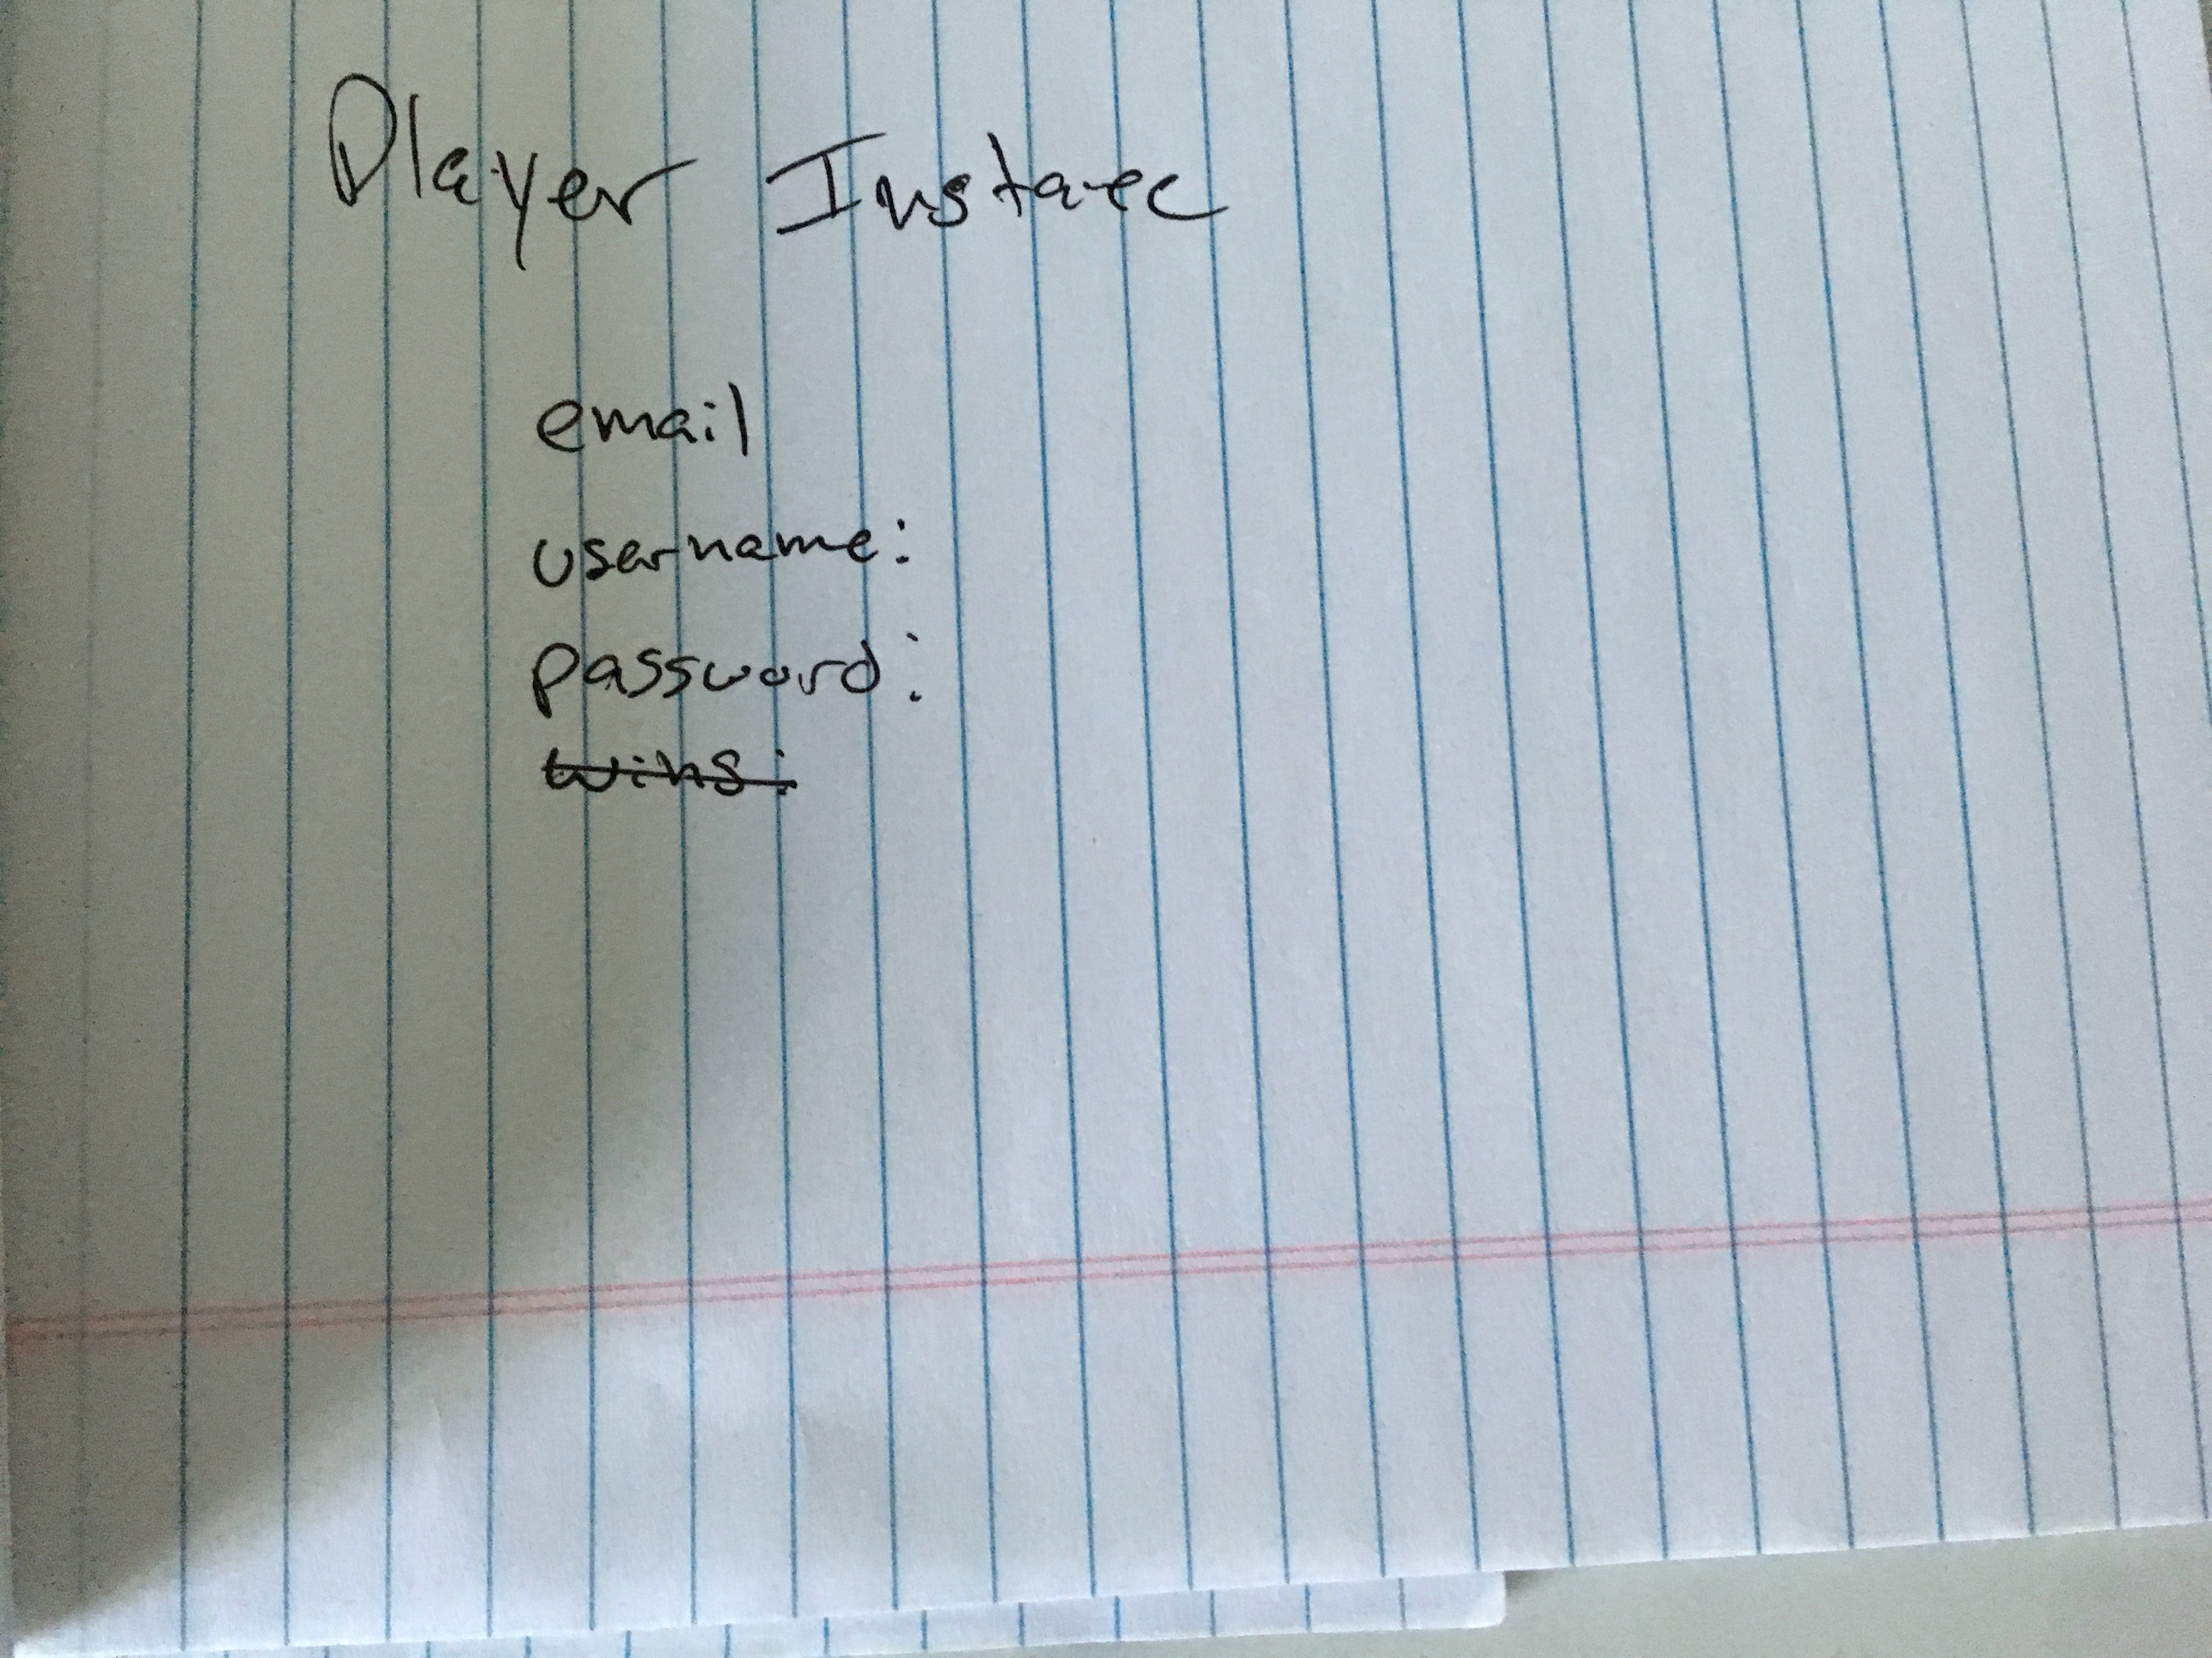 Player Instaec
email
username:
password:
wins: